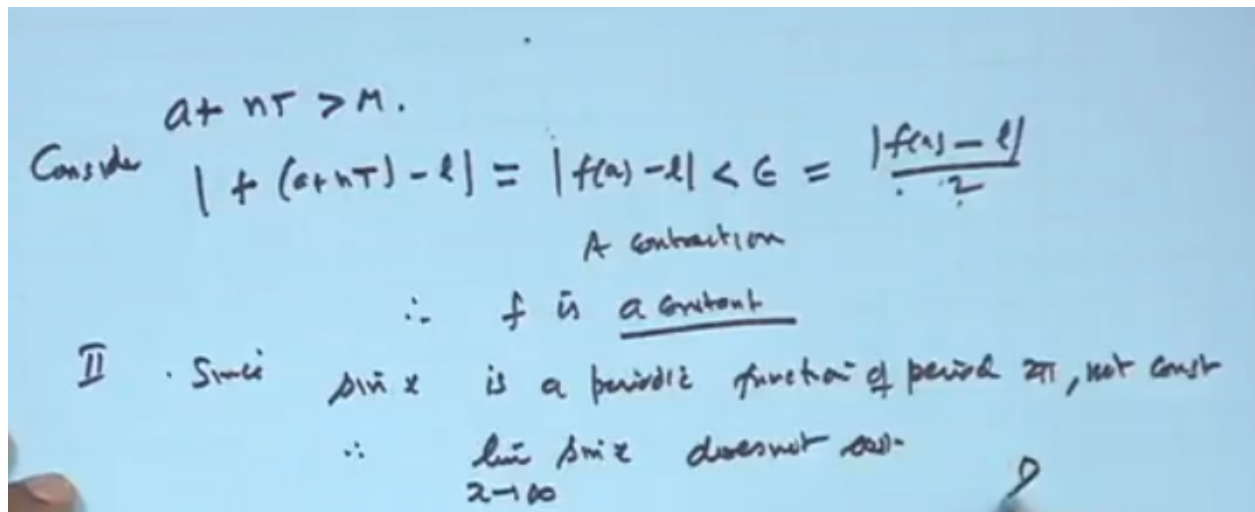 a + nT > M.
Consider |f(a+nT) - l| = |f(a) - l| < ϵ = |f(a) - l| / 2
A contraction
∴ f is a constant
II . Since sin x is a periodic function of period 2π, not const
∴ lim sin x does not
x→∞